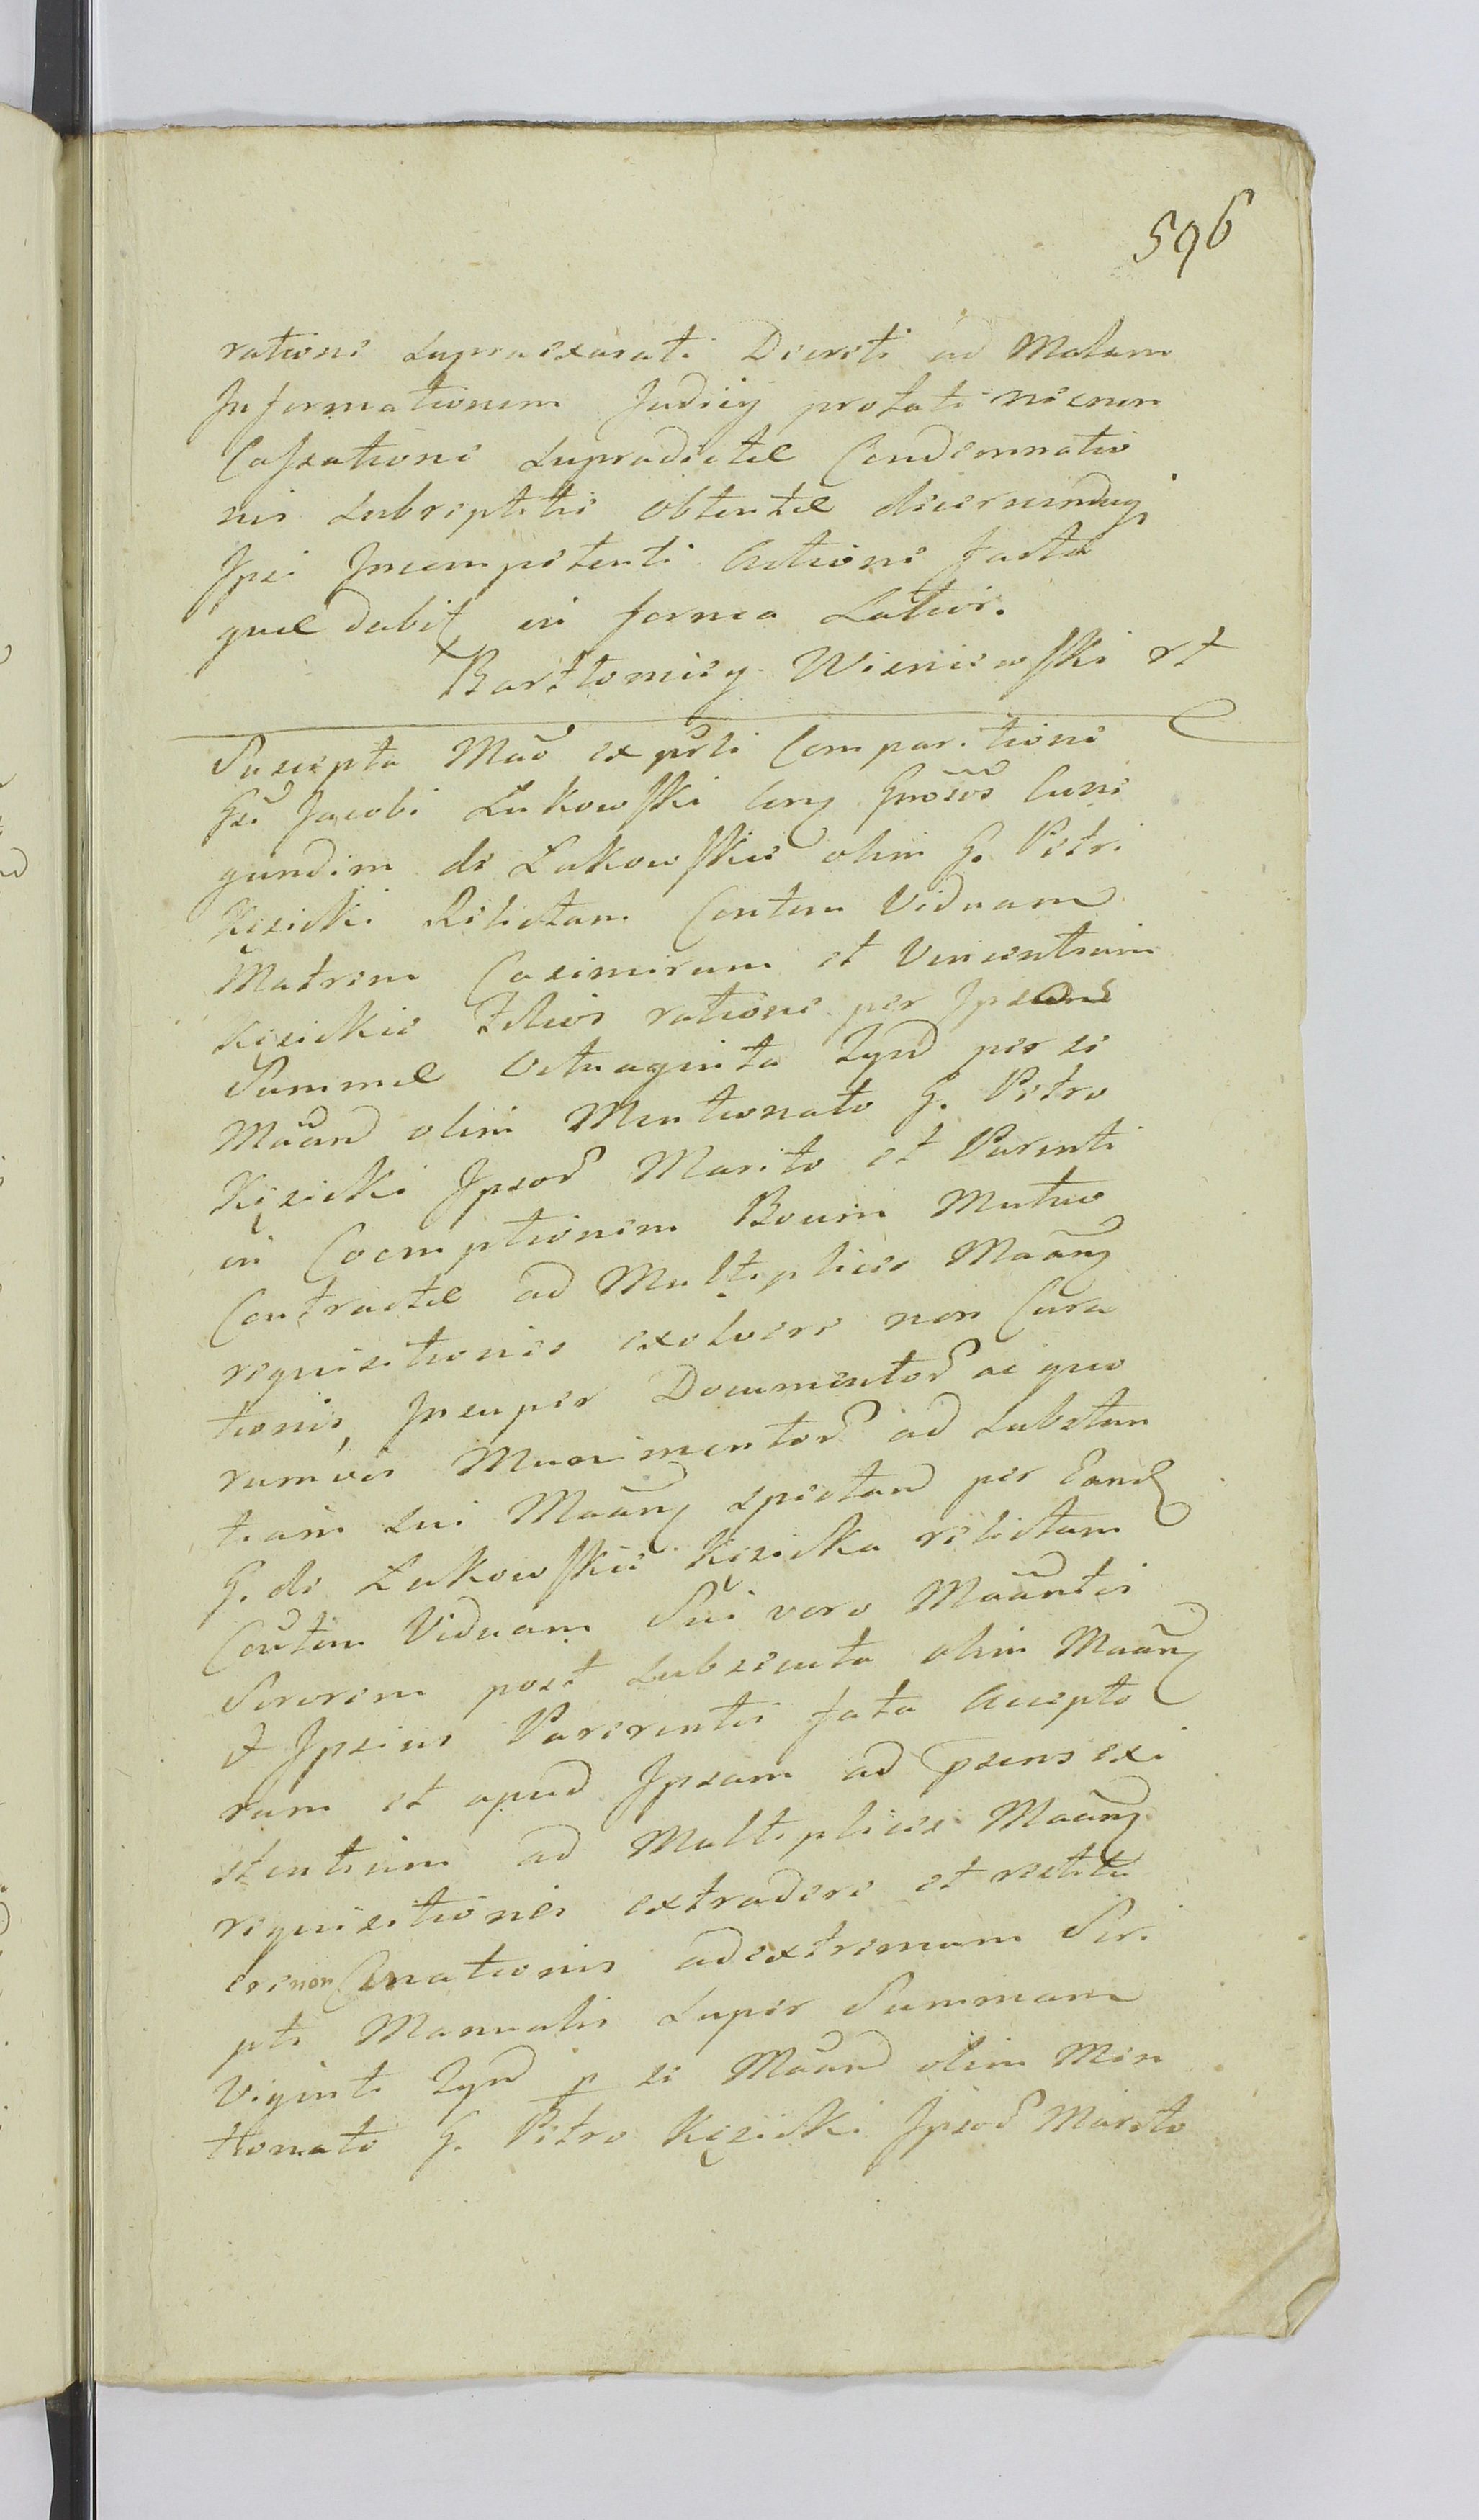 596
ratione supraexarati Decreti ad Malam
Informationem Judicy prolati nienon
Cassatione supradictae Condemnatio
nis subreptitie obtentae decernendaq
Ipsi Incompetenti Actione factae
quae dabit in forma Latior.
Bartłomiey Wisniewski rt
Suscepta Mão ex pñli Comparitione
Gsi Jacobi Łukowski Cong Gnosos Cune
gundim de Łukowskie olim G. Petri
Kęsicki Relictam Contem Viduam
Matrem Casimirum et Vincentium
Kęsickie Filios ratione per Ipsans
Summae Octuaginta Tynf per se
Mãand olim Mentionato G. Petro
Kęsicki Ipsor Marito et Parenti
in Coemptionem Boum Mutuo
Contractae ad Multiplices Mãang
requisitiones exolvere non Cura
tionis, Insuper Documentor ac quo
rumvis Munimentor ad substan
tiam sui Mãang spectan per Eand
G. de Łukowskie Kęsicka relictam
Contem Viduam Sui vero Mãantis
Sororem post subsecuta olim Mãang
et Ipsius Parerentis fata Accepto
rum et apud Ipsam ad psens exi
stentium ad Multiplices Mãang
requisitiones extradere et restitu
ere non Curationis ad extremum Scri
pti Manualis super Summam
Viginti Tynf p se Mãand olim Men
tionato G. Petro Kęsicki Ipsor Marito